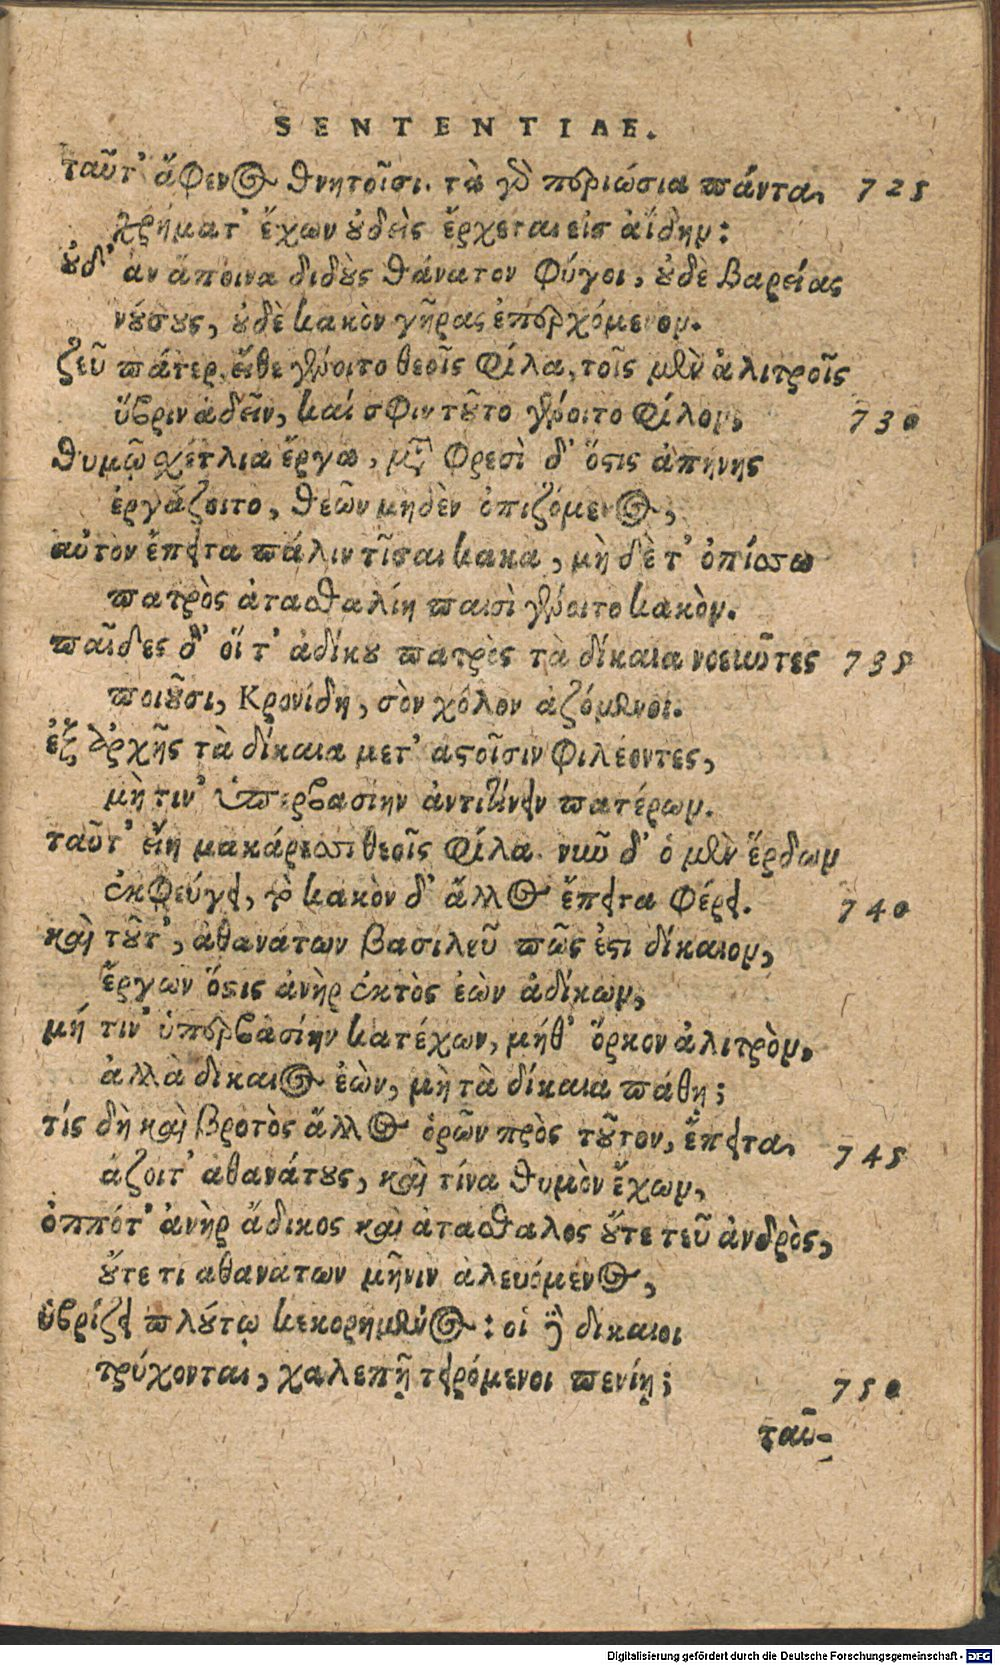 SENTENTIAE.
ταῦτ' ἄφενος θνητοῖσι. τὰ γὸ περιώσια πάντα, 725
χρήματ' ἔχων οὐδεὶς ἔρχεται εἰς ἀΐδην:
οὐδ' ἀν ἄποινα διδοὺς θάνατον φύγοι, οὐδὲ βαρείας
νούσους, οὐδὲ κακὸν γῆρας ἐπερχόμενον.
ζεῦ πάτερ, εἴθε γένοιτο θεοῖς φίλα, τοῖς μὲν ἀλιτροῖς
ὕβριν ἁδεῖν, καί σφιν τοῦτο γένοιτο φίλον, 730
θυμῷ σχέτλια ἔργα, μετὰ φρεσὶ δ' ὅστις ἀπηνὴς
ἐργάζοιτο, θεῶν μηδὲν ὀπιζόμενος,
αὐτὸν ἔπειτα πάλιν τῖσαι κακα, μὴ δὲ τ' ὀπίσσω
πατρὸς ἀτασθαλίη παισὶ γένοιτο κακὸν.
παῖδες δ' οἵ τ' ἀδίκου πατρὸς τὰ δίκαια νοεῦντες 735
ποιοῦσι, Κρονίδη, σὸν χόλον ἁζόμενοι.
ἐξ ἀρχῆς τὰ δίκαια μετ' αστοῖσιν φιλέοντες,
μὴ τιν' ὑπερβασίην ἀντιτίνειν πατέρων.
ταῦτ' εἴη μακάρεσσι θεοῖς φίλα. νῦν δ' ὁ μὲν ἕρδων
ἐκφεύγει, τὸ κακὸν δ' ἄλλος ἔπειτα φέρει. 740
καὶ τοῦτ', ἀθανάτων βασιλεῦ πῶς ἐστι δίκαιον,
ἔργων ὅστις ἀνὴρ ἐκτὸς ἐὼν ἀδίκων,
μή τιν' ὑπερβασίην κατέχων, μήθ' ὅρκον ἀλιτρὸν,
ἀλλὰ δίκαιος ἐὼν, μὴ τὰ δίκαια πάθῃ;
τίς δὴ καὶ βροτὸς ἄλλος ὁρῶν πρὸς τοῦτον, ἔπειτα, 745
ἅζοιτ' αθανάτους, καὶ τίνα θυμὸν ἔχων,
ὁππότ' ἀνὴρ ἄδικος καὶ ἀτάσθαλος οὔτε τεῦ ἀνδρὸς,
οὔτε τι αθανάτων μῆνιν ἀλευόμενος,
ὑβρίζει πλούτῳ κεκορημένος: οἱ δὲ δίκαιοι
τρύχονται, χαλεπῇ τειρόμενοι πενίῃ; 750
ταῦ-
Digitalisierung gefördert durch die Deutsche Forschungsgemeinschaft - DFG